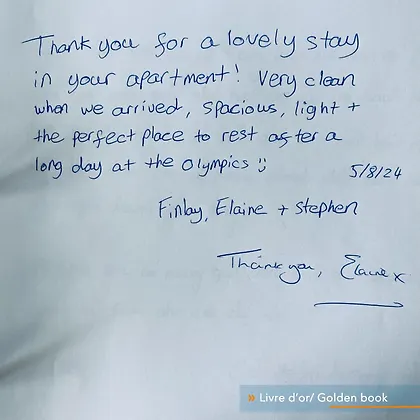 Thank you for a lovely stay
in your apartment! Very clean
when we arrived, spacious, light +
the perfect place to rest after a
long day at the Olympics :)
5/8/24
Finlay, Elaine + Stephen
Thank you, Elaine x
» Livre d'or/ Golden book